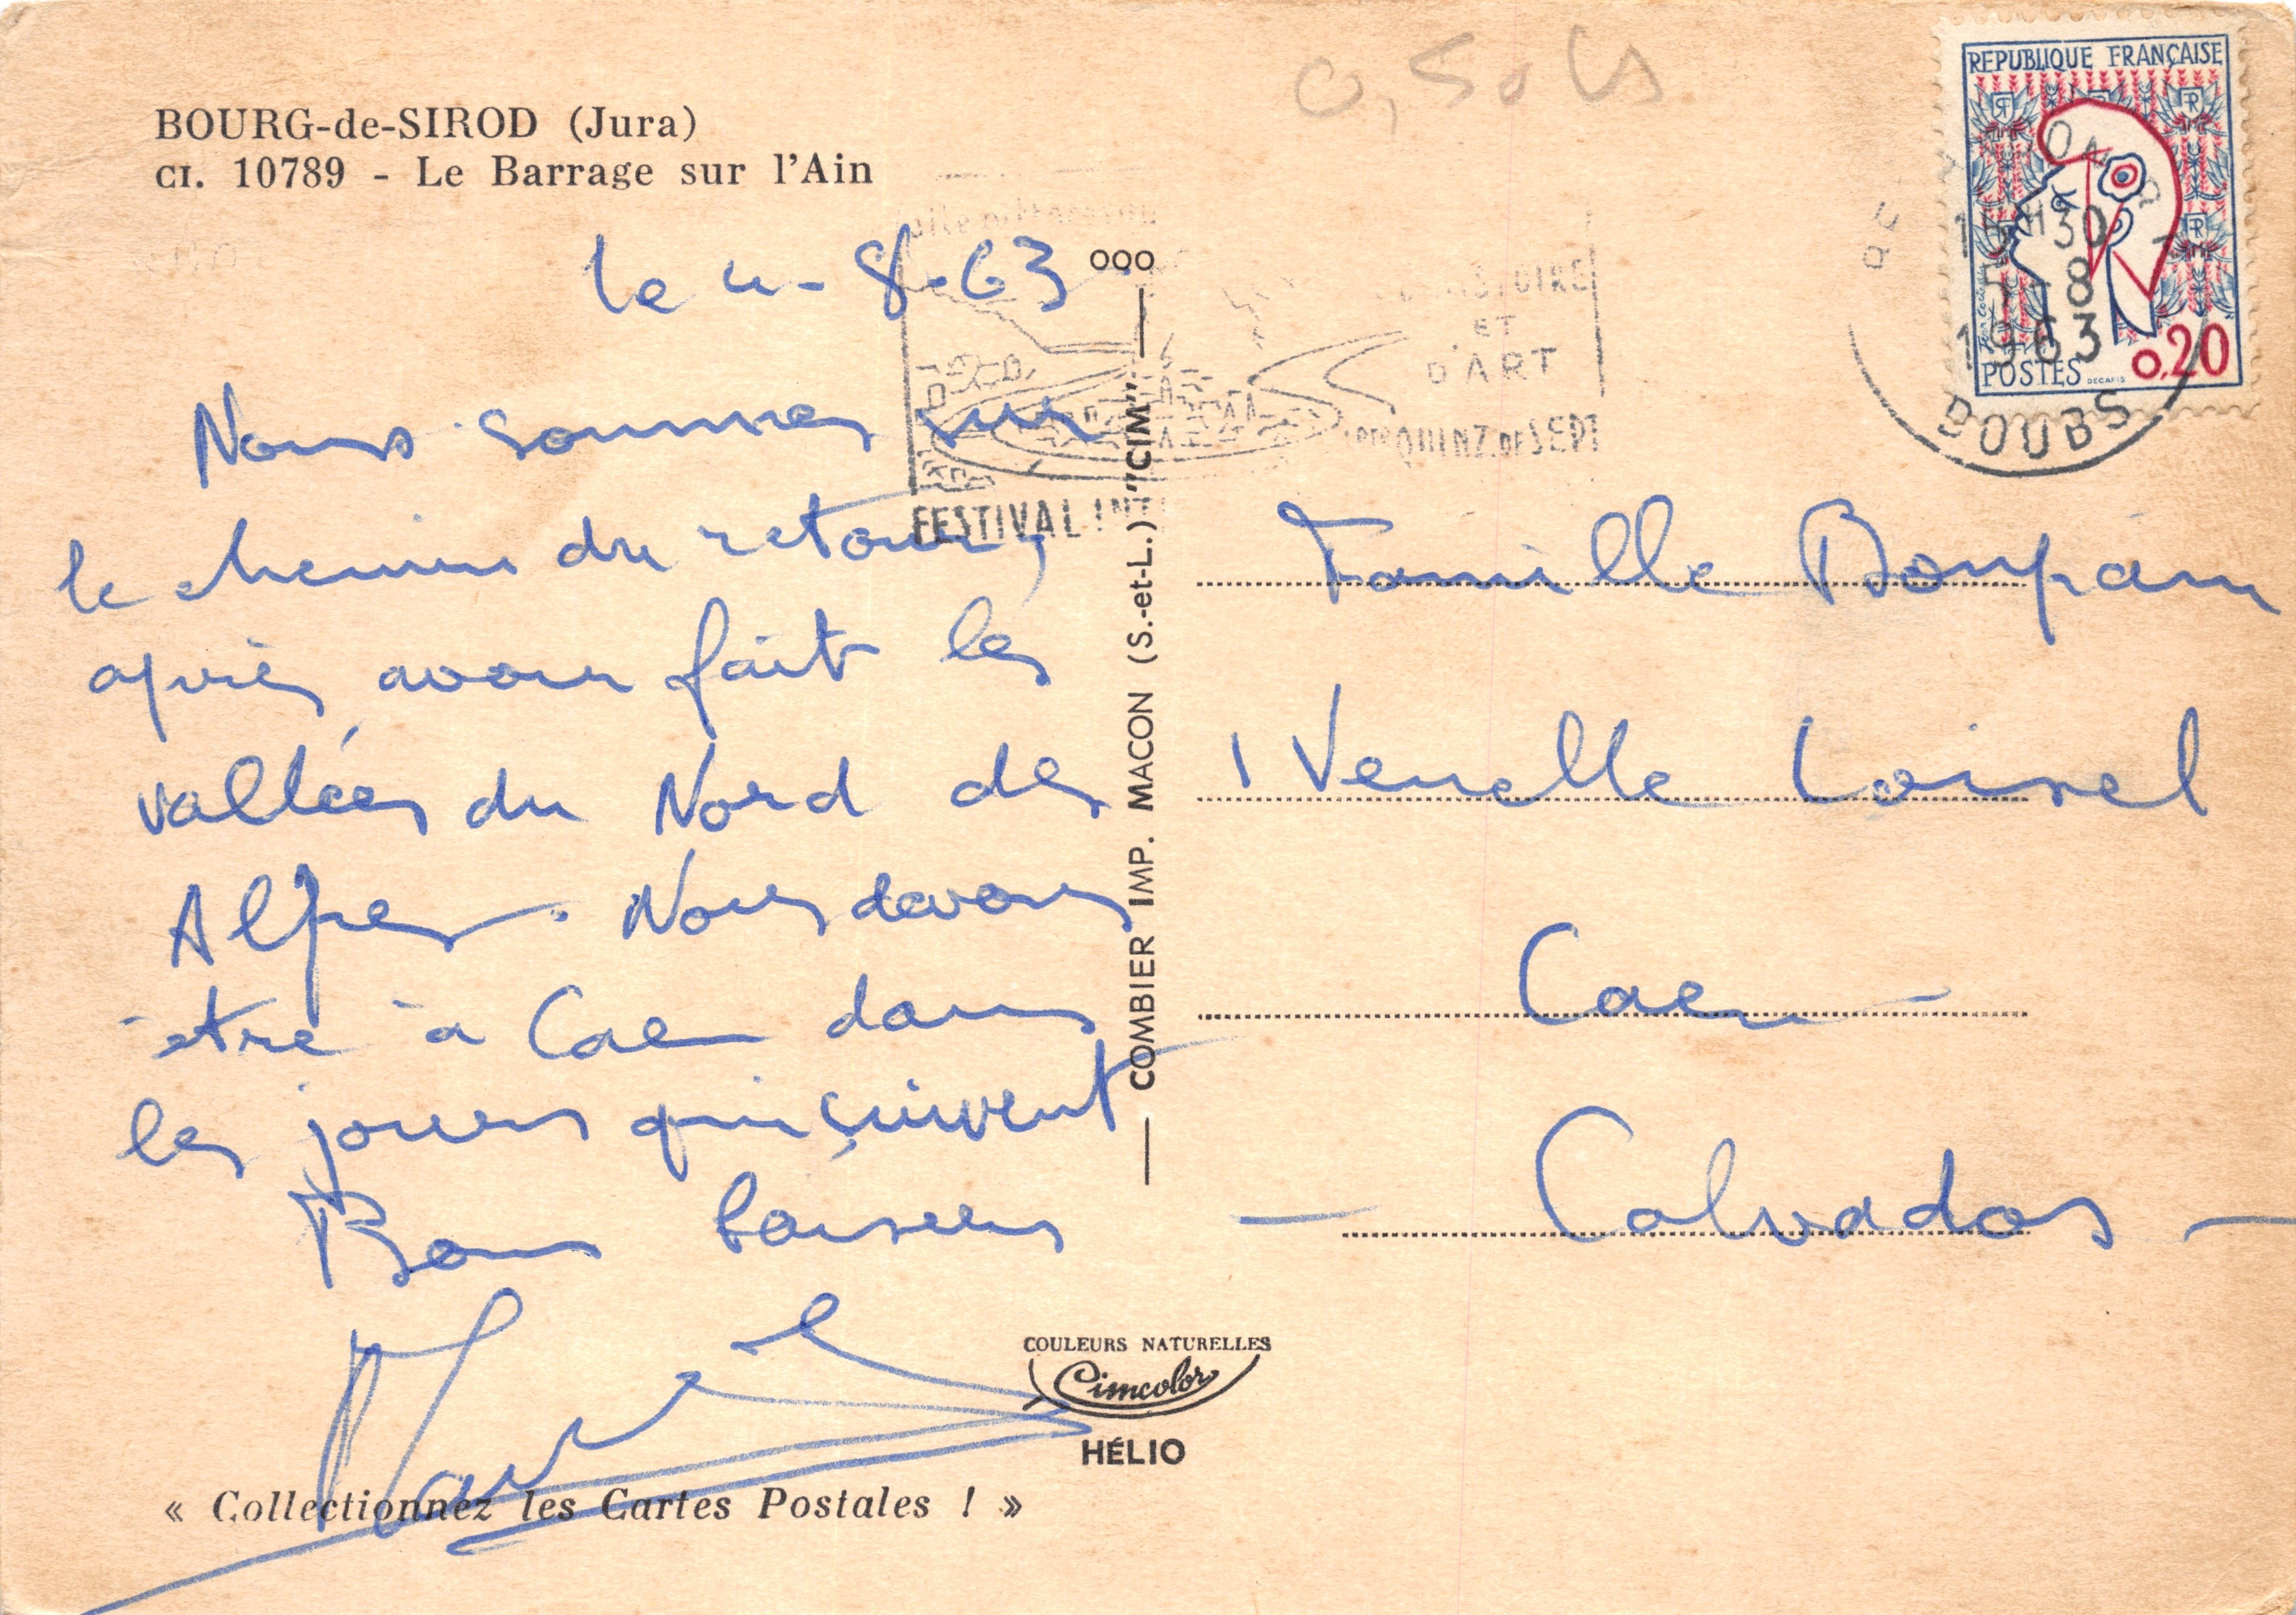 BOURG-de-SIROD (Jura)
CI. 10789 - Le Barrage sur l'Ain
0,50 cts
REPUBLIQUE FRANÇAISE
POSTES 0,20
DECARIS
15H30
5 - 8
1963
DOUBS
ET
D'ART
QUINZ. DE SEPT
FESTIVAL INT
le 4-8-63
Nous sommes sur
le chemin du retour,
après avoir fait les
vallées du Nord des
Alpes. Nous devons
être à Caen dans
les jours qui suivent
Bons baisers
ooo
COMBIER IMP. MACON (S.-et-L.) "CIM"
Famille
1 Venelle Loisel
Caen
Calvados
COULEURS NATURELLES
Cimcolor
HÉLIO
« Collectionnez les Cartes Postales ! »